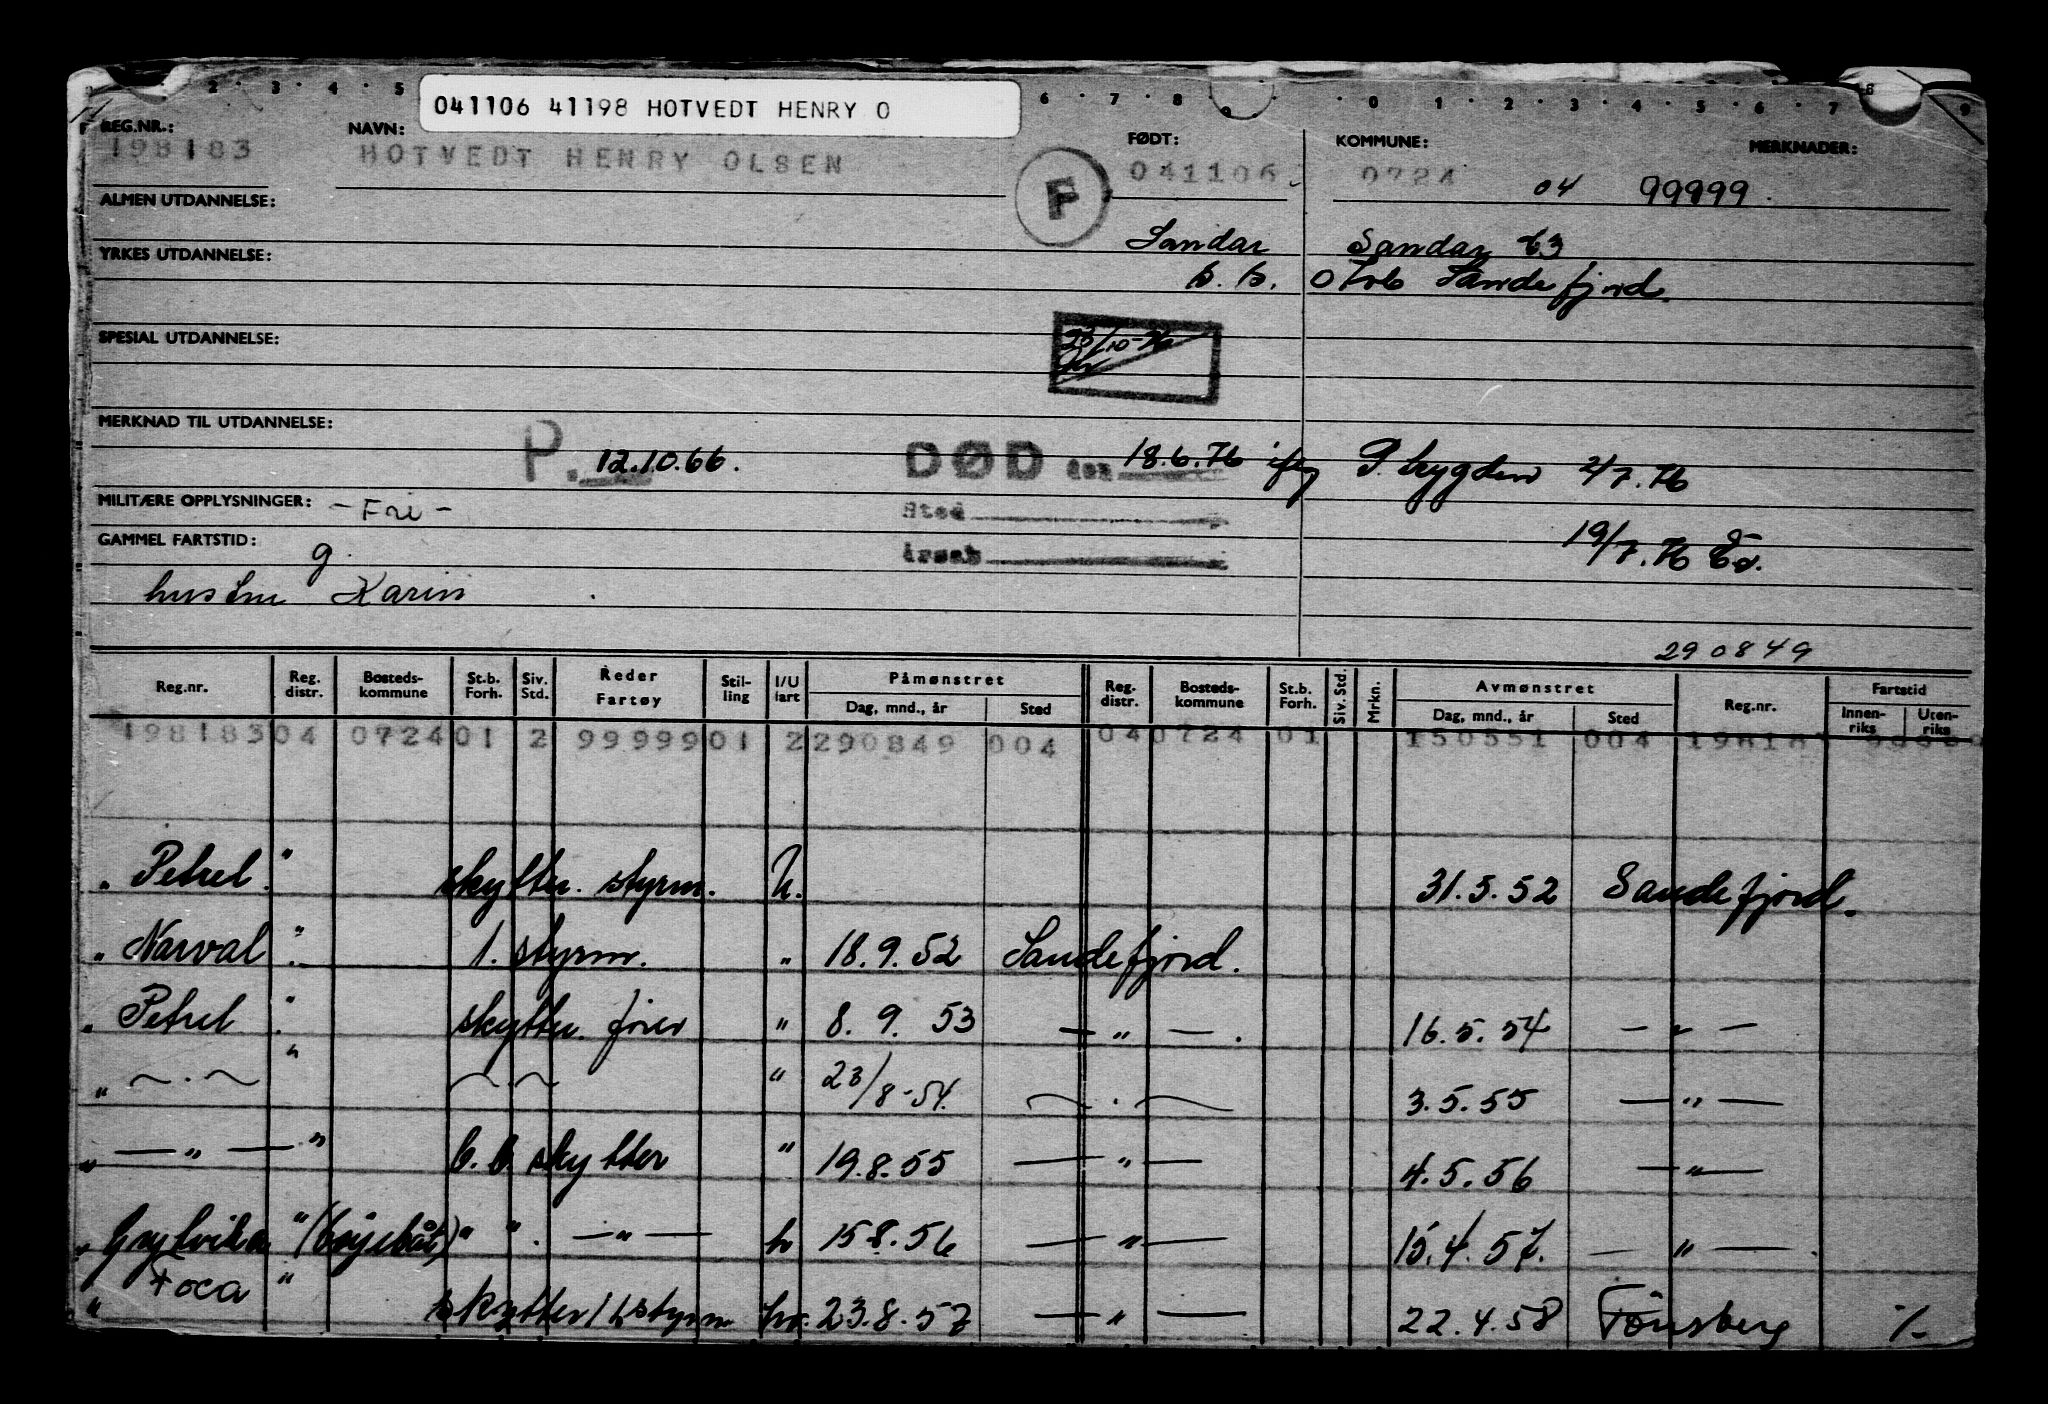 041106 41198 HOTVEDT HENRY O
REG.NR.: NAVN: FØDT: KOMMUNE: MERKNADER:
198183 HOTVEDT HENRY OLSEN F 041106 0724 04 99999
ALMEN UTDANNELSE:
Sandar Sandar 63
YRKES UTDANNELSE:
b. b. Sandefjord.
SPESIAL UTDANNELSE:
23/10-76
MERKNAD TIL UTDANNELSE:
P. 12.10.66. DØD den 18.6.76 P. trygden 2/7.76
MILITÆRE OPPLYSNINGER: - Fri - Sted
GAMMEL FARTSTID: g. årsak 19/7.76
hustru Karin
290849
Reg.nr. Reg. distr. Bosteds-kommune St.b. Forh. Siv. Std. Reder Fartøy Stil-ling I/U fart Påmønstret Dag, mnd., år Sted Reg. distr. Bosteds-kommune St.b. Forh. Siv. Std. Mrkn. Avmønstret Dag, mnd., år Sted Reg.nr. Fartstid Innen-riks Uten-riks
198183 04 0724 01 2 99999 01 2 290849 004 04 0724 01 150551 004
" Petrel " skytter. styrm. U. 31.5.52 Sandefjord.
" Narval " 1. styrm. " 18.9.52 Sandefjord.
" Petrel " skytter. " 8.9.53 — " — 16.5.54 — " —
" ~ . ~ " ~ ~ " 23/8-54. ~ . ~ 3.5.55 — " —
" — " — " skytter " 19.8.55 — " — 4.5.56 — " —
" Grytvika " (bøyebåt) " " . — " — 15.8.56 — " — 15.4.57. — " —
" Foca " skytter/1styrm 23.8.57 — " — 22.4.58 Tønsberg